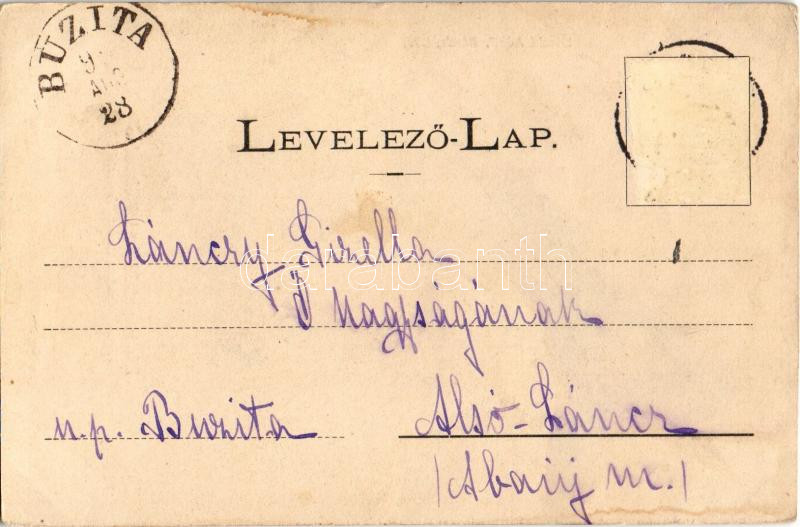 BUZITA
28
LEVELEZŐ-LAP.
Lánczy Gizella
Ő Nagyságának
u.p. Buzita
Alsó-Láncz
/Abaúj m./
darabanth